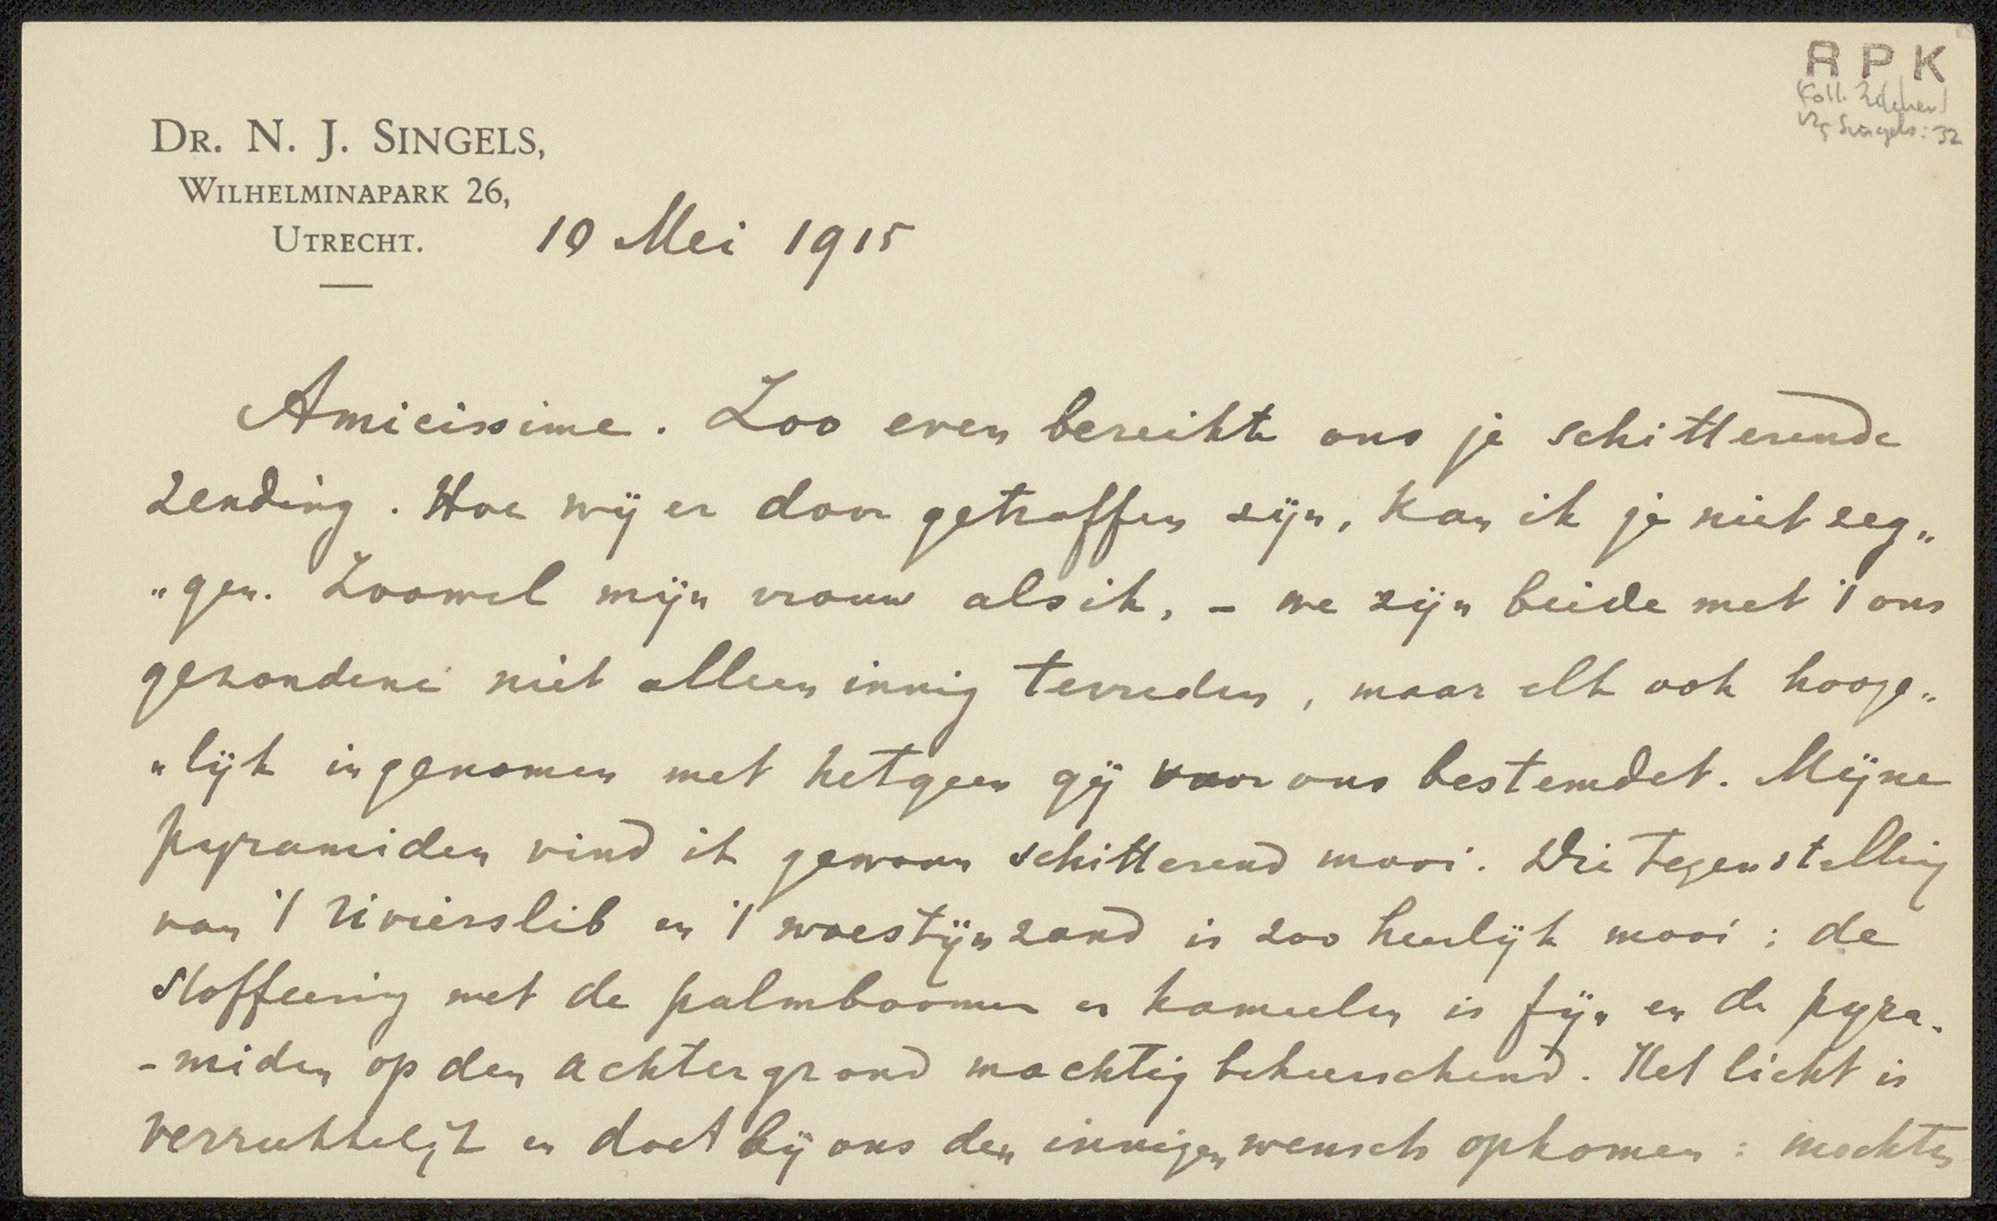 R P K
Koll. Zilcken
Vz Singels: 32
DR. N. J. SINGELS,
WILHELMINAPARK 26,
UTRECHT.
10 Mei 1915
Amicissime. Zoo even bereikte ons je schitterende
zending. Hoe wij er door getroffen zijn, kan ik je niet zeg„
„gen. Zoowel mijn vrouw als ik, – we zijn beide met 't ons
gezondene niet alleen innig tevreden, maar elk ook hooge„
„lijk ingenomen met hetgeen gij voor ons bestemdet. Mijne
pyramiden vind ik gewoon schitterend mooi. Die tegenstelling
van 't rivierslib en 't woestijnzand is zoo heerlijk mooi; de
stoffeering met de palmboomen en kameelen is fijn en de pyra-
-miden op den achtergrond machtig beheerschend. Het licht is
verrukkelijk en doet bij ons den innigen wensch opkomen: mochten